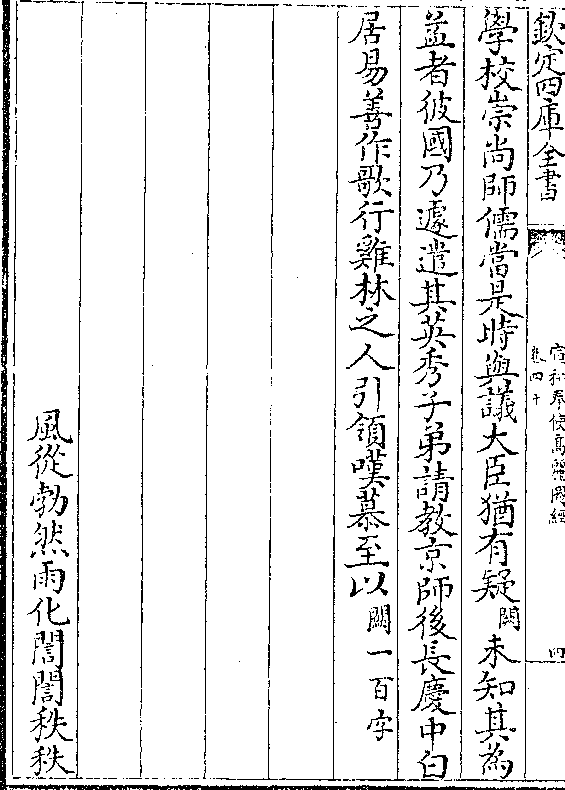 欽定四庫全書
宣和奉使高麗圖經
卷四十
四
學校崇尚師儒當是時與議大臣猶有疑闕未知其為
益者彼國乃遽遣其英秀子弟請教京師後長慶中白
居易善作歌行雞林之人引領嘆慕至以闕一百字
風從勃然雨化誾誾秩秩